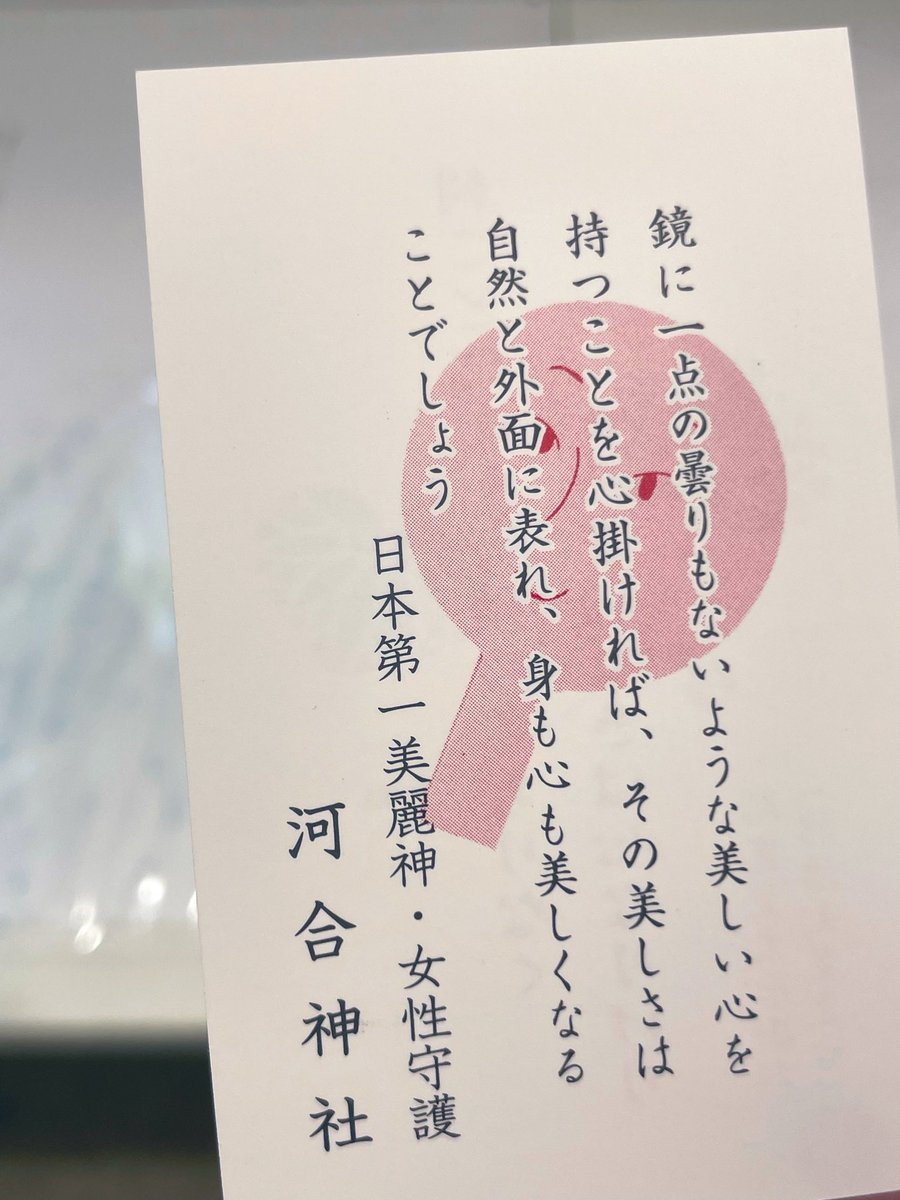 鏡に一点の曇りもないような美しい心を
持つことを心掛ければ、その美しさは
自然と外面に表れ、身も心も美しくなる
ことでしょう
日本第一美麗神・女性守護
河合神社